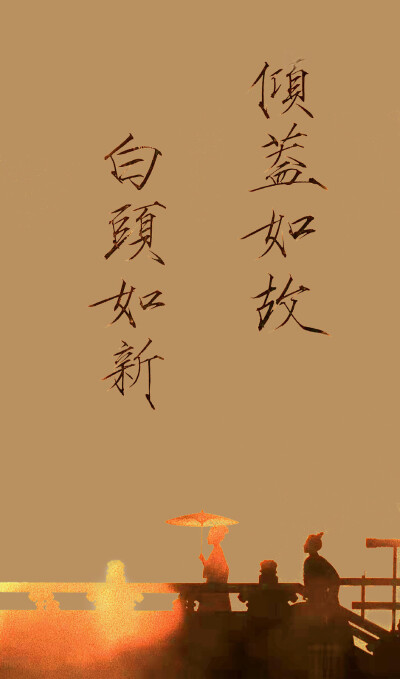 傾蓋如故
白頭如新